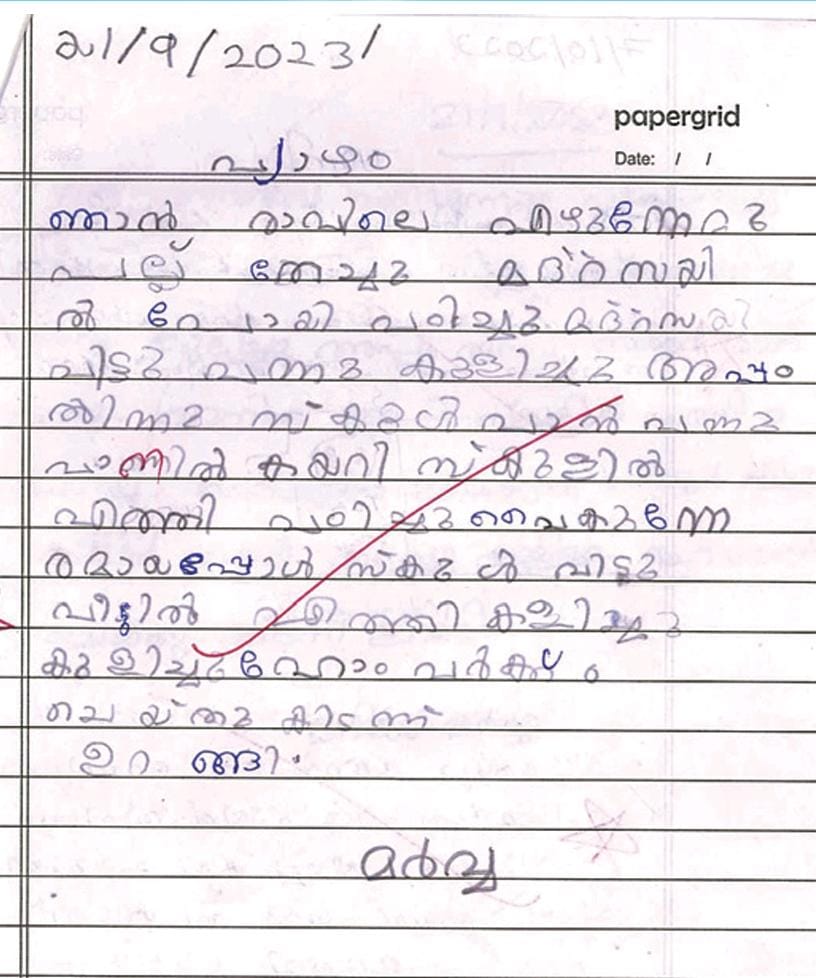 21/9/2023/
papergrid
Date: / /
വ്യാഴം
ഞാൻ രാവിലെ എഴുന്നേറു
പല്ല് തേച്ചു മദ്റസയി
ൽ പോയി പഠിച്ചു മദ്റസയി
വിട്ടു വന്നു കുളിച്ചു അപ്പം
തിന്നു സ്കുൾ വാൻ വന്നു
വാണിൽ കയറി സ്കുളിൽ
എത്തി പഠിച്ചു വൈകുന്നേ
രമായപ്പോൾ സ്കുൾ വിട്ടു
വീട്ടിൽ എത്തി കളിച്ചു
കുളിച്ചു ഹോം വർക്കും
ചെയ്തു കിടന്ന്
ഉറങ്ങി.
മർവ്വ